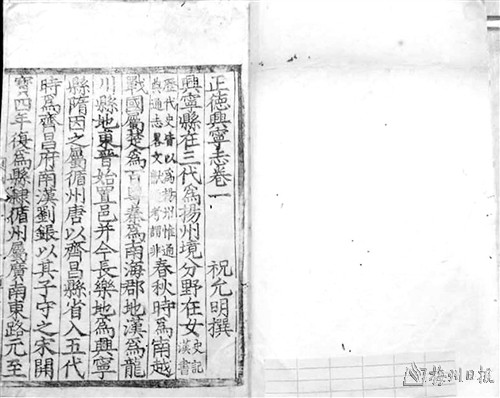 正德興寧志卷一 祝允明撰
興寧縣在三代為楊州境分野在女史記漢書
歷代史皆以為楊州惟通典通志畧文獻考謂非春秋時為南越
戰國屬楚為百粵秦為南海郡地漢為龍
川縣地東晉始置邑并今長樂地為興寧
縣隋因之屬循州唐以齊昌縣省入五代
時為齊昌府南漢劉鋹以其子守之宋開
寶四年復為縣隸循州屬廣南東路元至
梅州日报